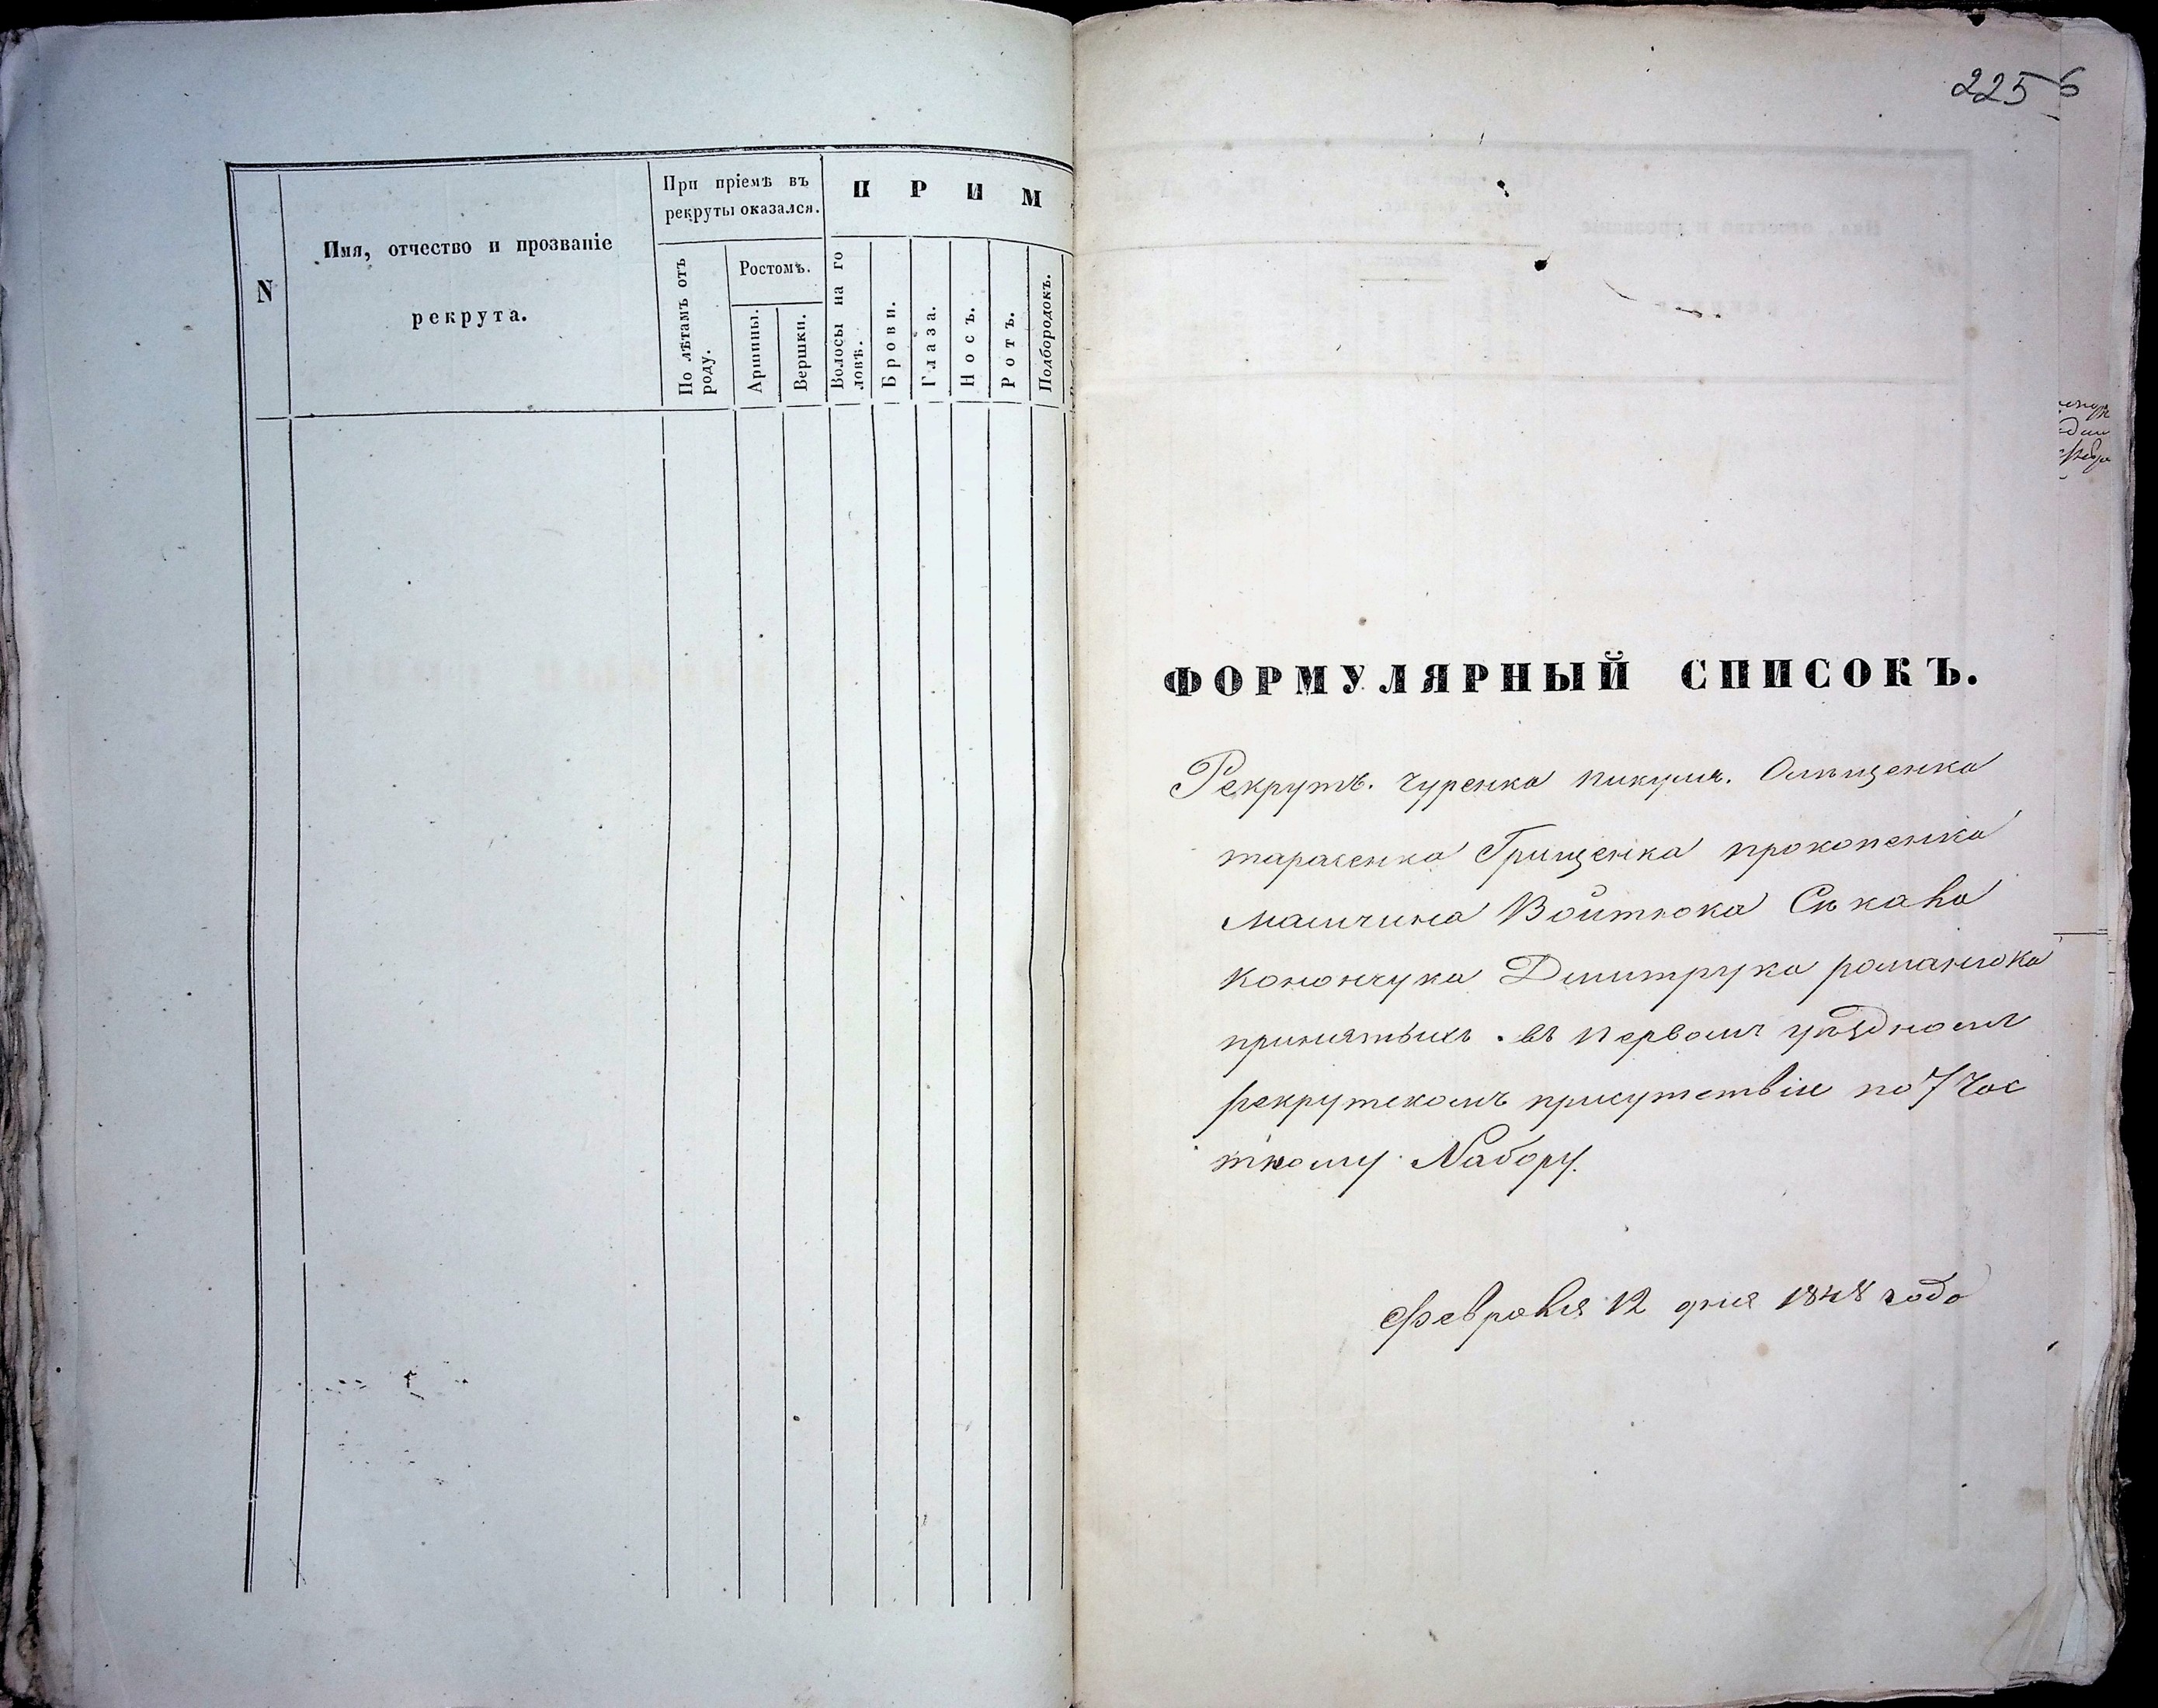 N
Имя, отчество и прозваніе
рекрута.
При пріемѣ въ
рекруты оказался.
По лѣтамъ отъ
роду.
Ростомъ.
Аршины.
Вершки.
П Р И М
Волосы на го
ловѣ.
Брови.
Глаза.
Носъ.
Ротъ.
Подбородокъ.
225
6
ФОРМУЛЯРНЫЙ СПИСОКЪ.
Рекрутъ. Чуренка Никула. Онищенка
тарасенка Грищенка прокопенка
Мамчина Войтюка
Конончука Дмитрука романюка
принятыхъ въ Первомъ уѣздномъ
рекрутскомъ присутствіи по 7 Час
тному Набору.
Февраля 12 дня 1848 года